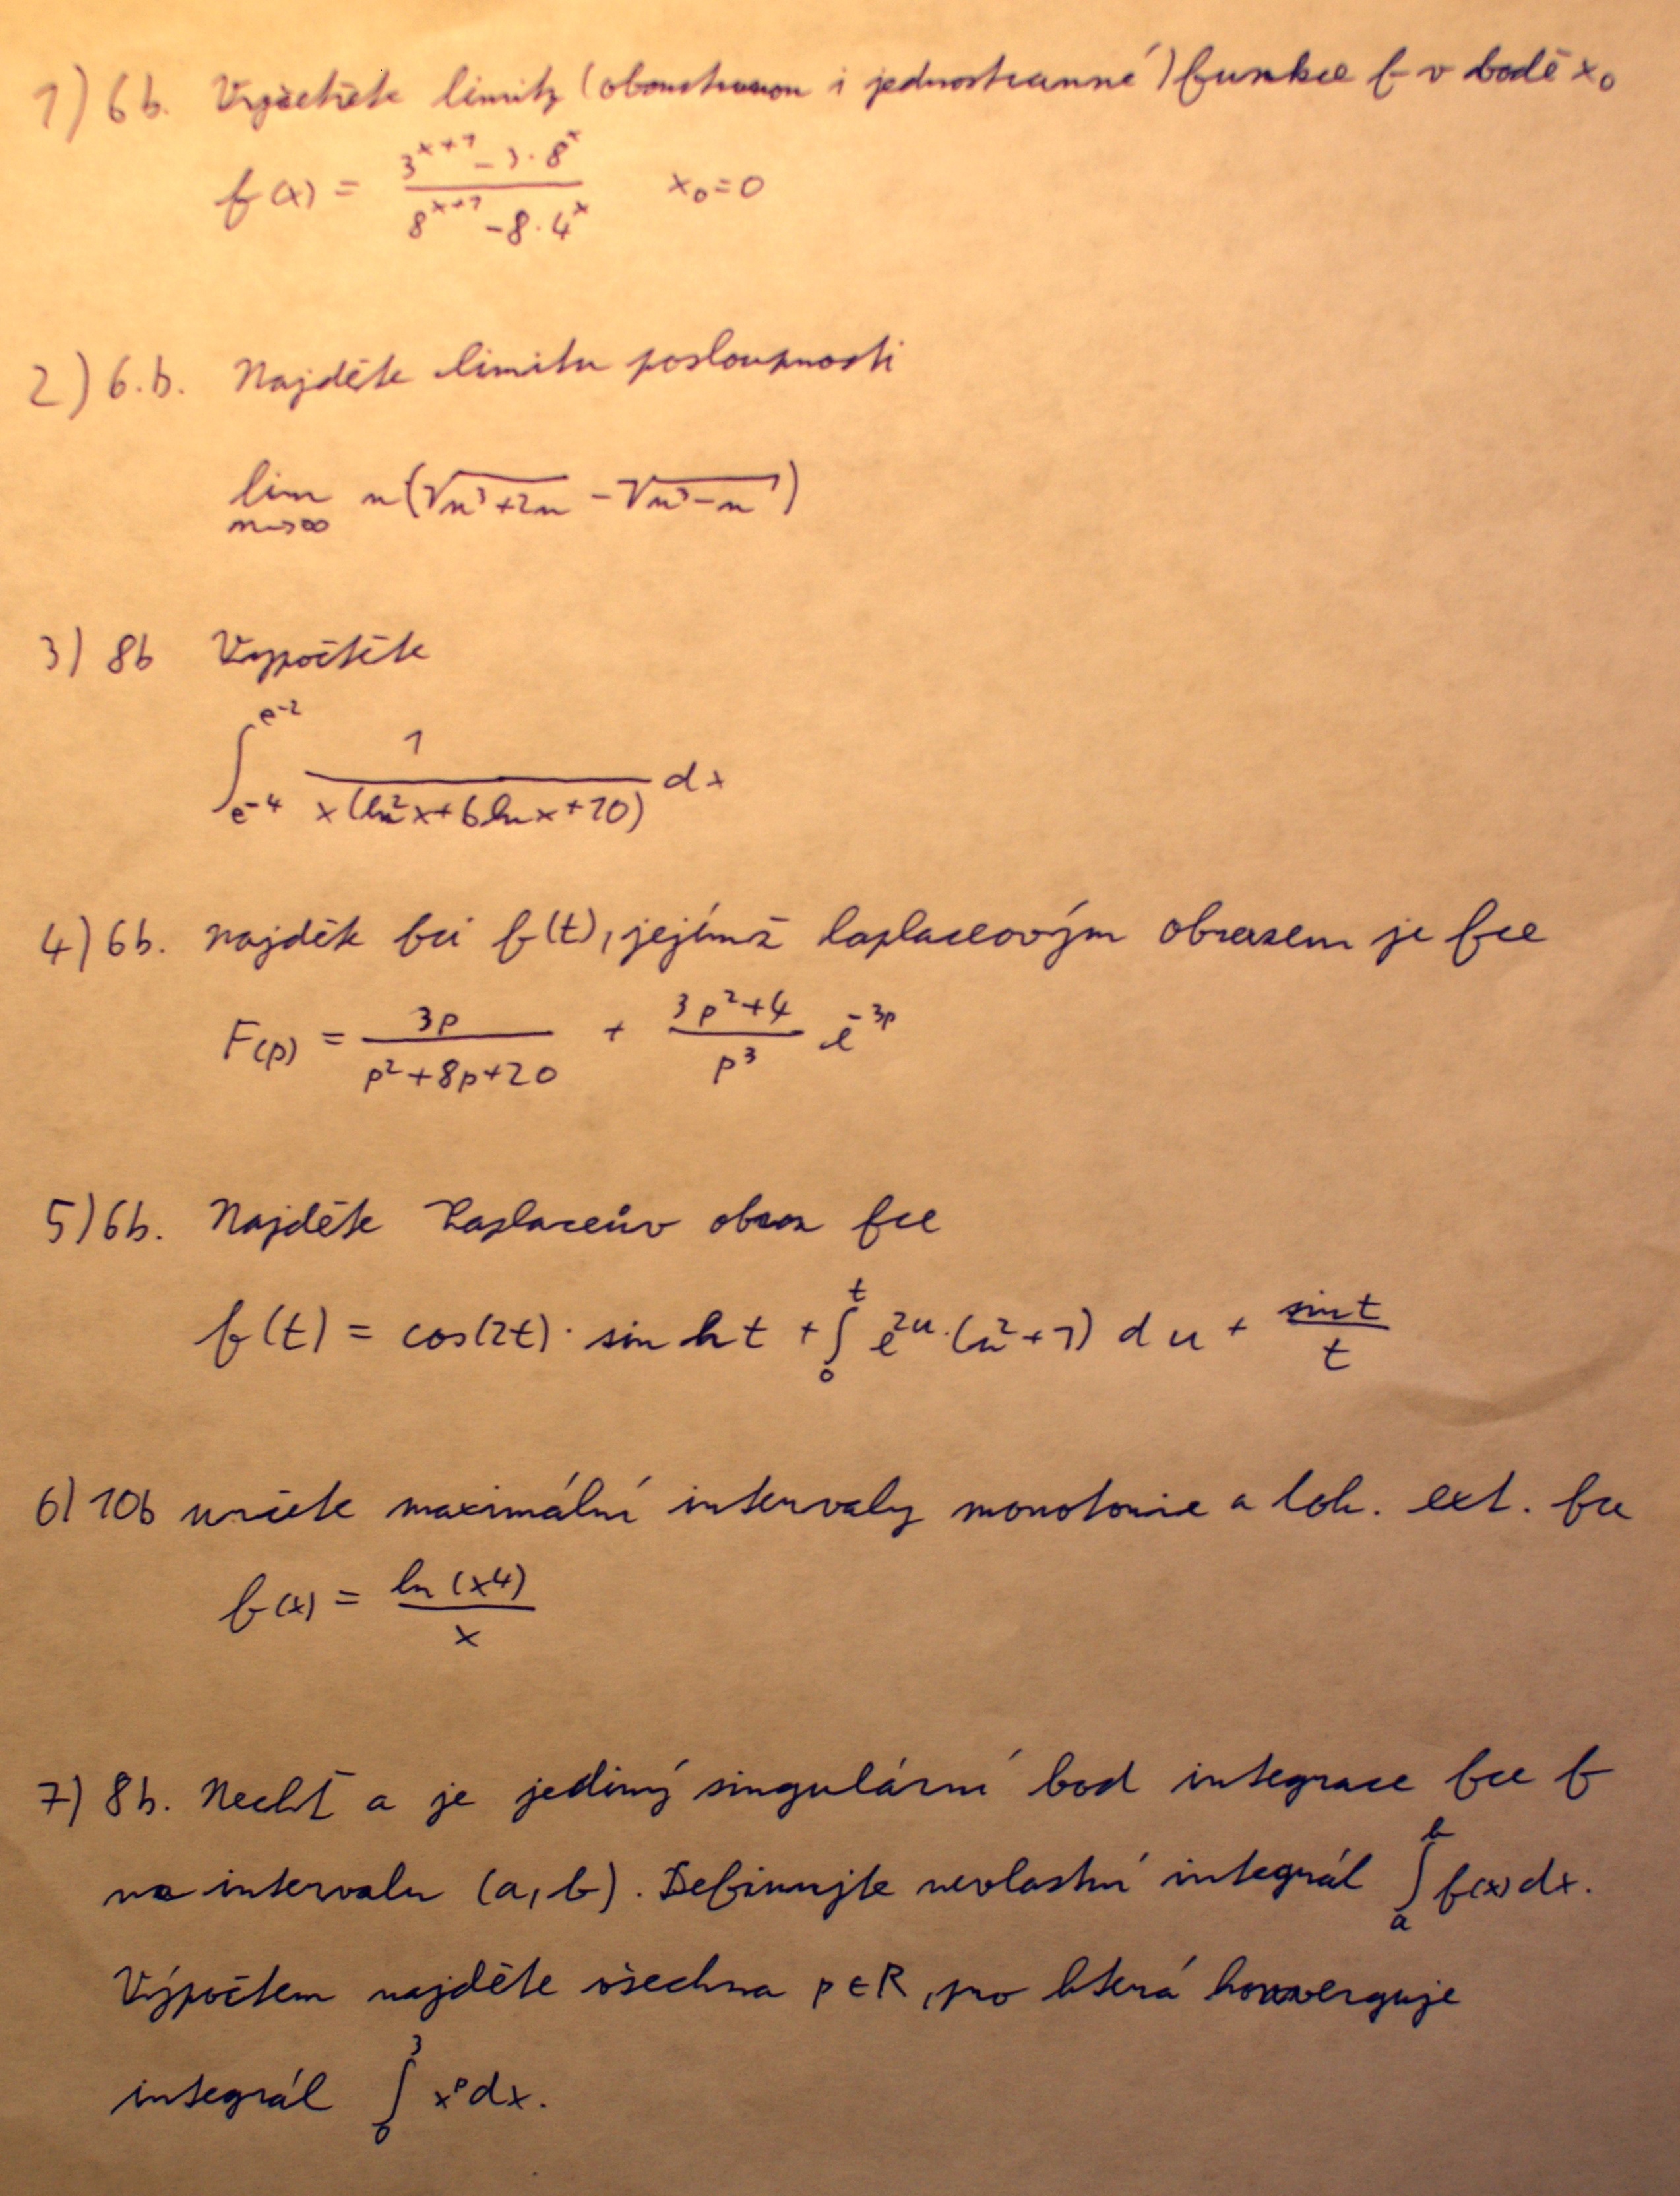 1) 6b. Vypočtěte limity (oboustrannou i jednostranné) funkce f v bodě x₀
f(x) = (3^(x+1) - 3·8^x)/(8^(x+1) - 8·4^x) x₀=0
2) 6.b. Najděte limitu posloupnosti
lim n→∞ n(√(n³+2n) - √(n³-n))
3) 8b Vypočtěte
∫_(e^-4)^(e^-2) 1/(x(ln²x+6lnx+10)) dx
4) 6b. najděte fci f(t), jejímž laplaceovým obrazem je fce
F(p) = 3p/(p²+8p+20) + (3p²+4)/p³ e^(-3p)
5) 6b. Najděte Laplaceův obraz fce
f(t) = cos(2t)· sin h t + ∫_0^t e^(2u)·(u²+1) d u + sin t/t
6) 10b určete maximální intervaly monotonie a lok. ext. fce
f(x) = ln(x4)/x
7) 8b. Nechť a je jediný singulární bod integrace fce f
na intervalu (a,b). Definujte nevlastní integrál ∫_a^b f(x)dx.
Výpočtem najděte všechna p∈R, pro která konverguje
integrál ∫_0^3 x^p dx.